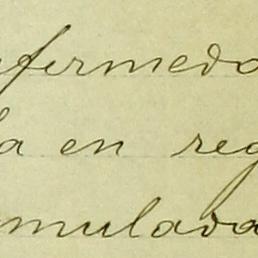 nfermeda
la en reg
mulada